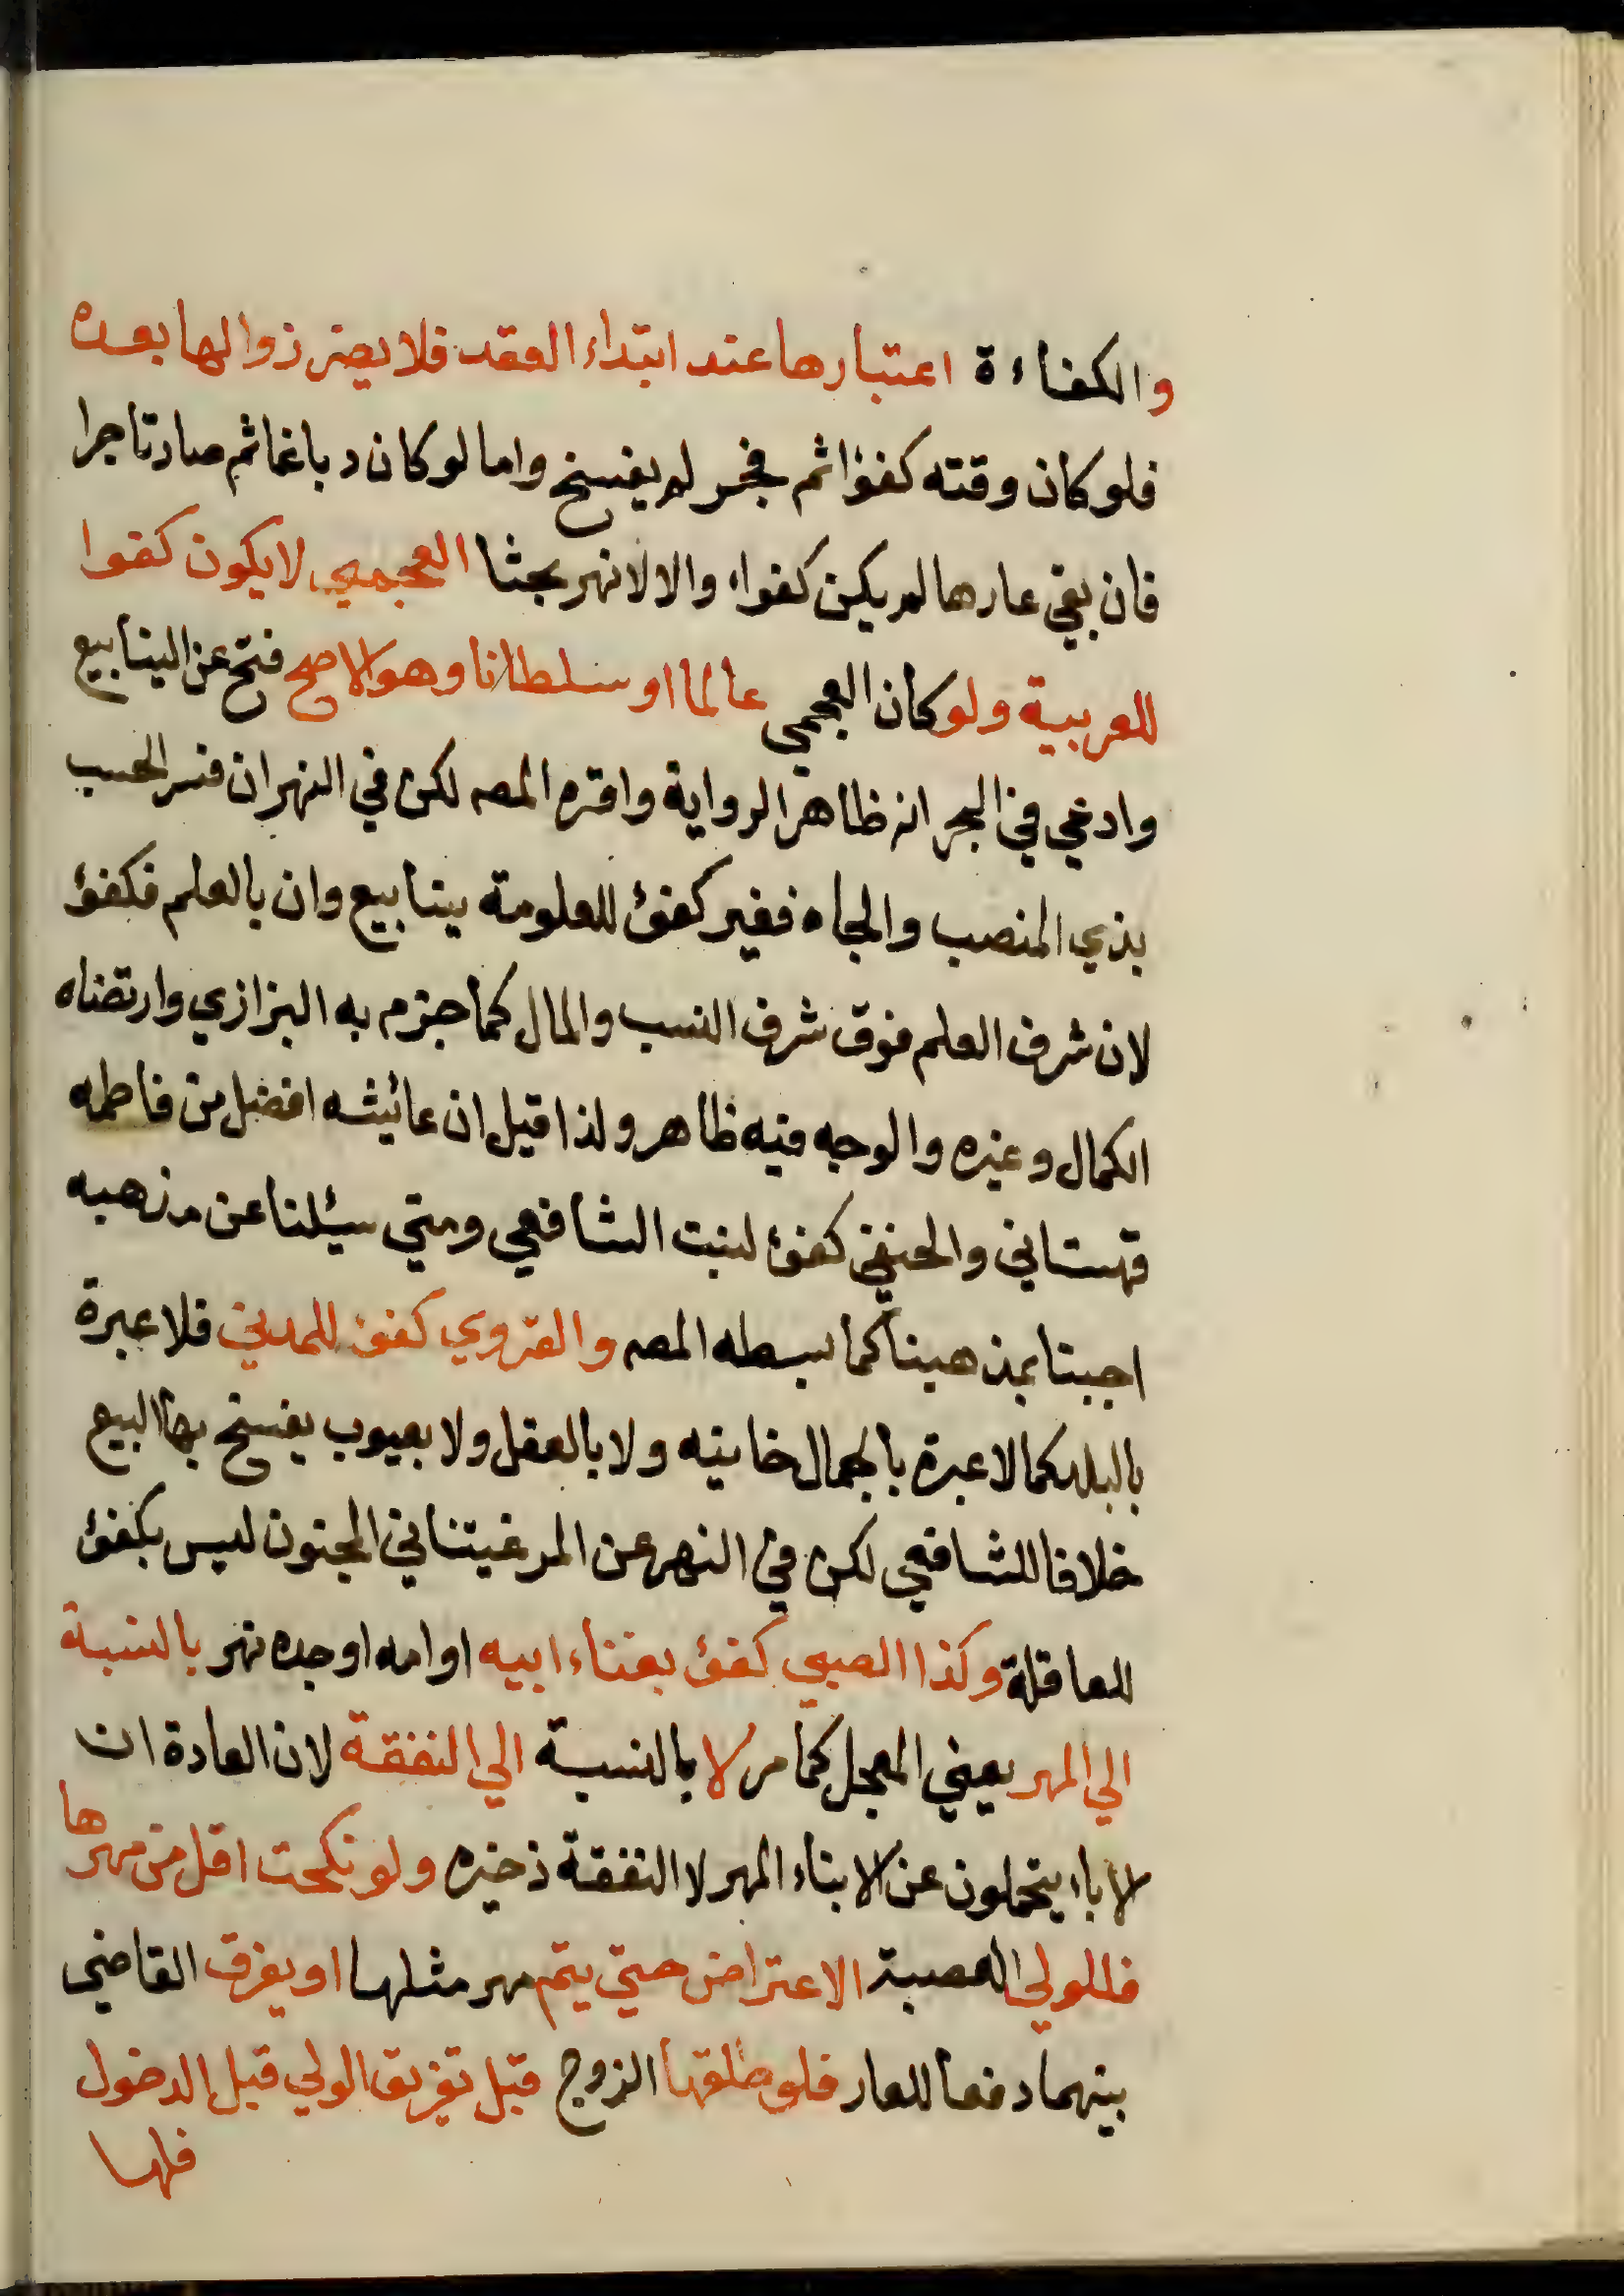 والكفاءة اعتبارها عند ابتداء العقد فلا يضر زوالها بعده
فلو كان وقته كفؤا ثم فجر لم يفسخ واما لو كان دباغا ثم صار تاجرا
فان بقي عارها لم يكن كفوا، والا لا نهر بحثا العجمي لا يكون كفوا
للعربية ولو كان العجمي عالما او سلطانا وهو الاصح فتح عن الينابيع
وادعي في البحر انه ظاهر الرواية واقره المصـ لكن في النهر ان فسر الحسب
بذي المنصب والجاه فغير كفئ للعلومة ينابيع وان بالعلم فكفؤ
لان شرف العلم فوق شرف النسب والمال كما جزم به البزازي وارتضاه
الكمال وغيره والوجه فيه ظاهر ولذا قيل ان عائيشه افضل من فاطمه
قهستاني والحنفي كفئ لبنت الشافعي ومتي سيئلنا عن مذهبه
اجبنا بمذهبنا كما بسطه المصـ والقروي كفئ للمدني فلا عبرة
بالبلد كما لا عبرة بالجمال خانيه ولا بالعقل ولا بعيوب يفسخ بها البيع
خلافا للشافعي لكن في النهر عن المرغيناني المجنون ليس بكفئ
للعاقلة وكذا الصبي كفئ بغناء ابيه او امه او جده نهر بالنسبة
الي المهر يعني المعجل كما مر لا بالنسبة الي النفقة لان العادة ان
لاباء يتحملون عن الابناء المهر لا النفقة ذخيره ولو نكحت اقل من مهرها
فللولي العصبة الاعتراض حتي يتم مهر مثلها او يفرق القاضي
بينهما دفعا للعار فلو طلقها الزوج قبل تفريق الولي قبل الدخول
فلها